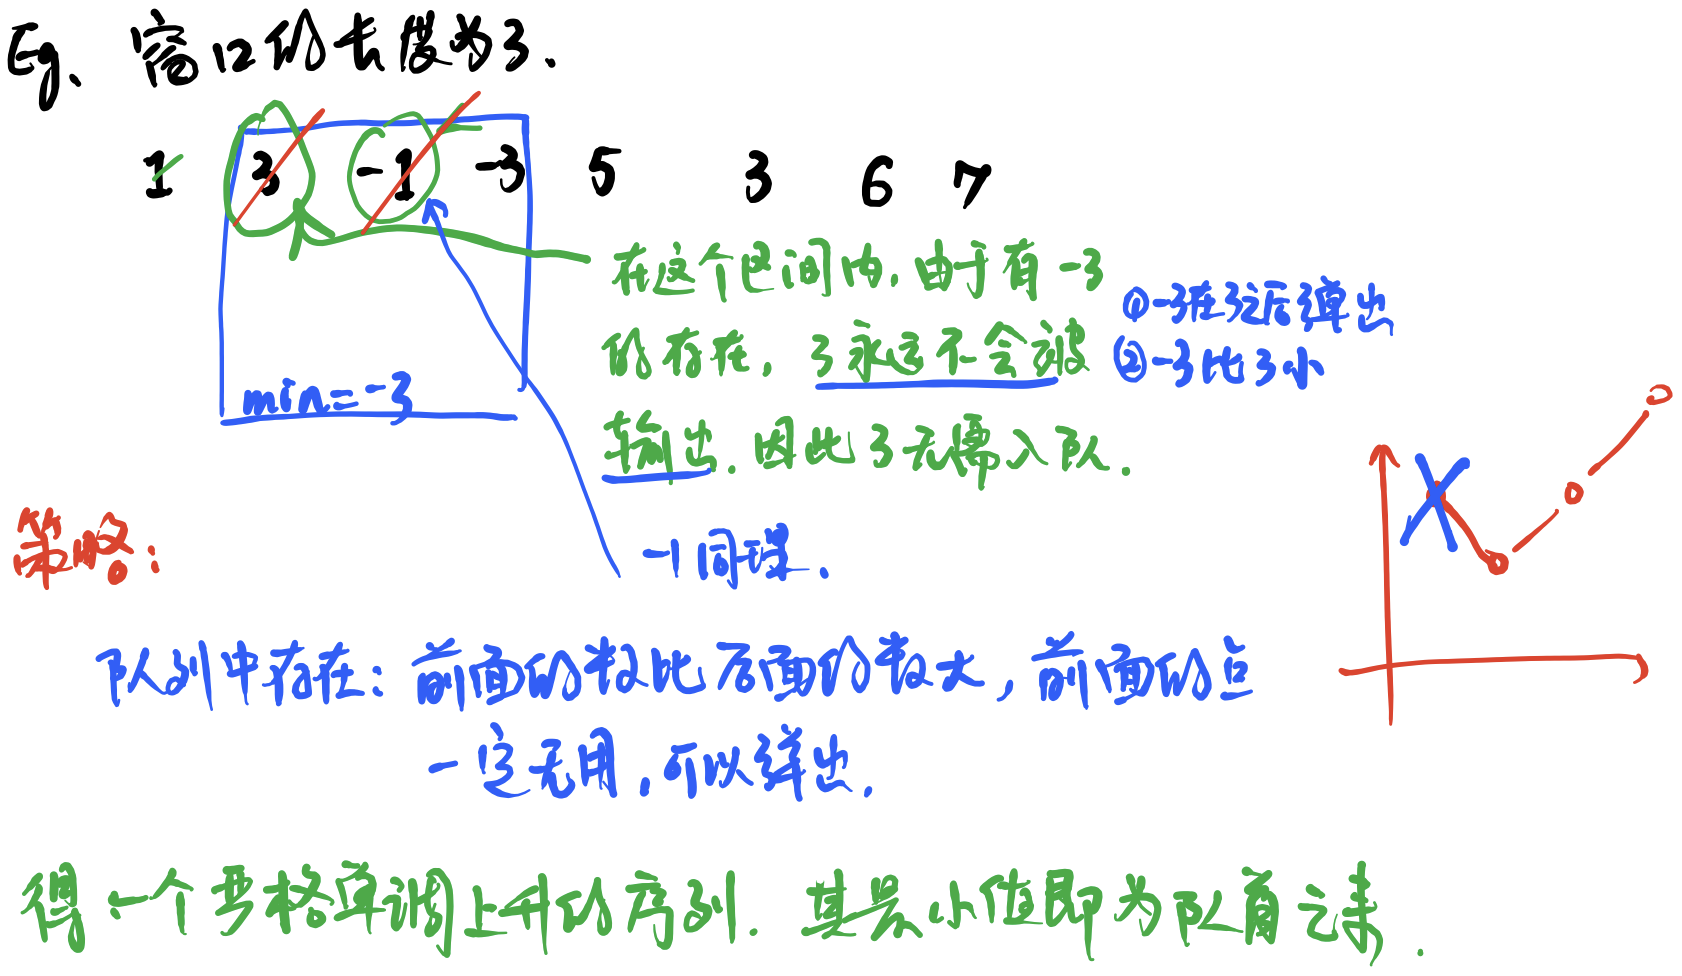 Eg、窗口的长度为3.
1 3 -1 -3 5 3 6 7
在这个区间内,由于有-3
的存在,3永远不会被
输出.因此3无需入队.
①-3在3之后弹出
②-3比3小
min=-3
-1同理.
策略:
队列中存在:前面的数比后面的数大,前面的点
一定无用,可以弹出.
得:一个严格单调上升的序列.其最小值即为队首元素.